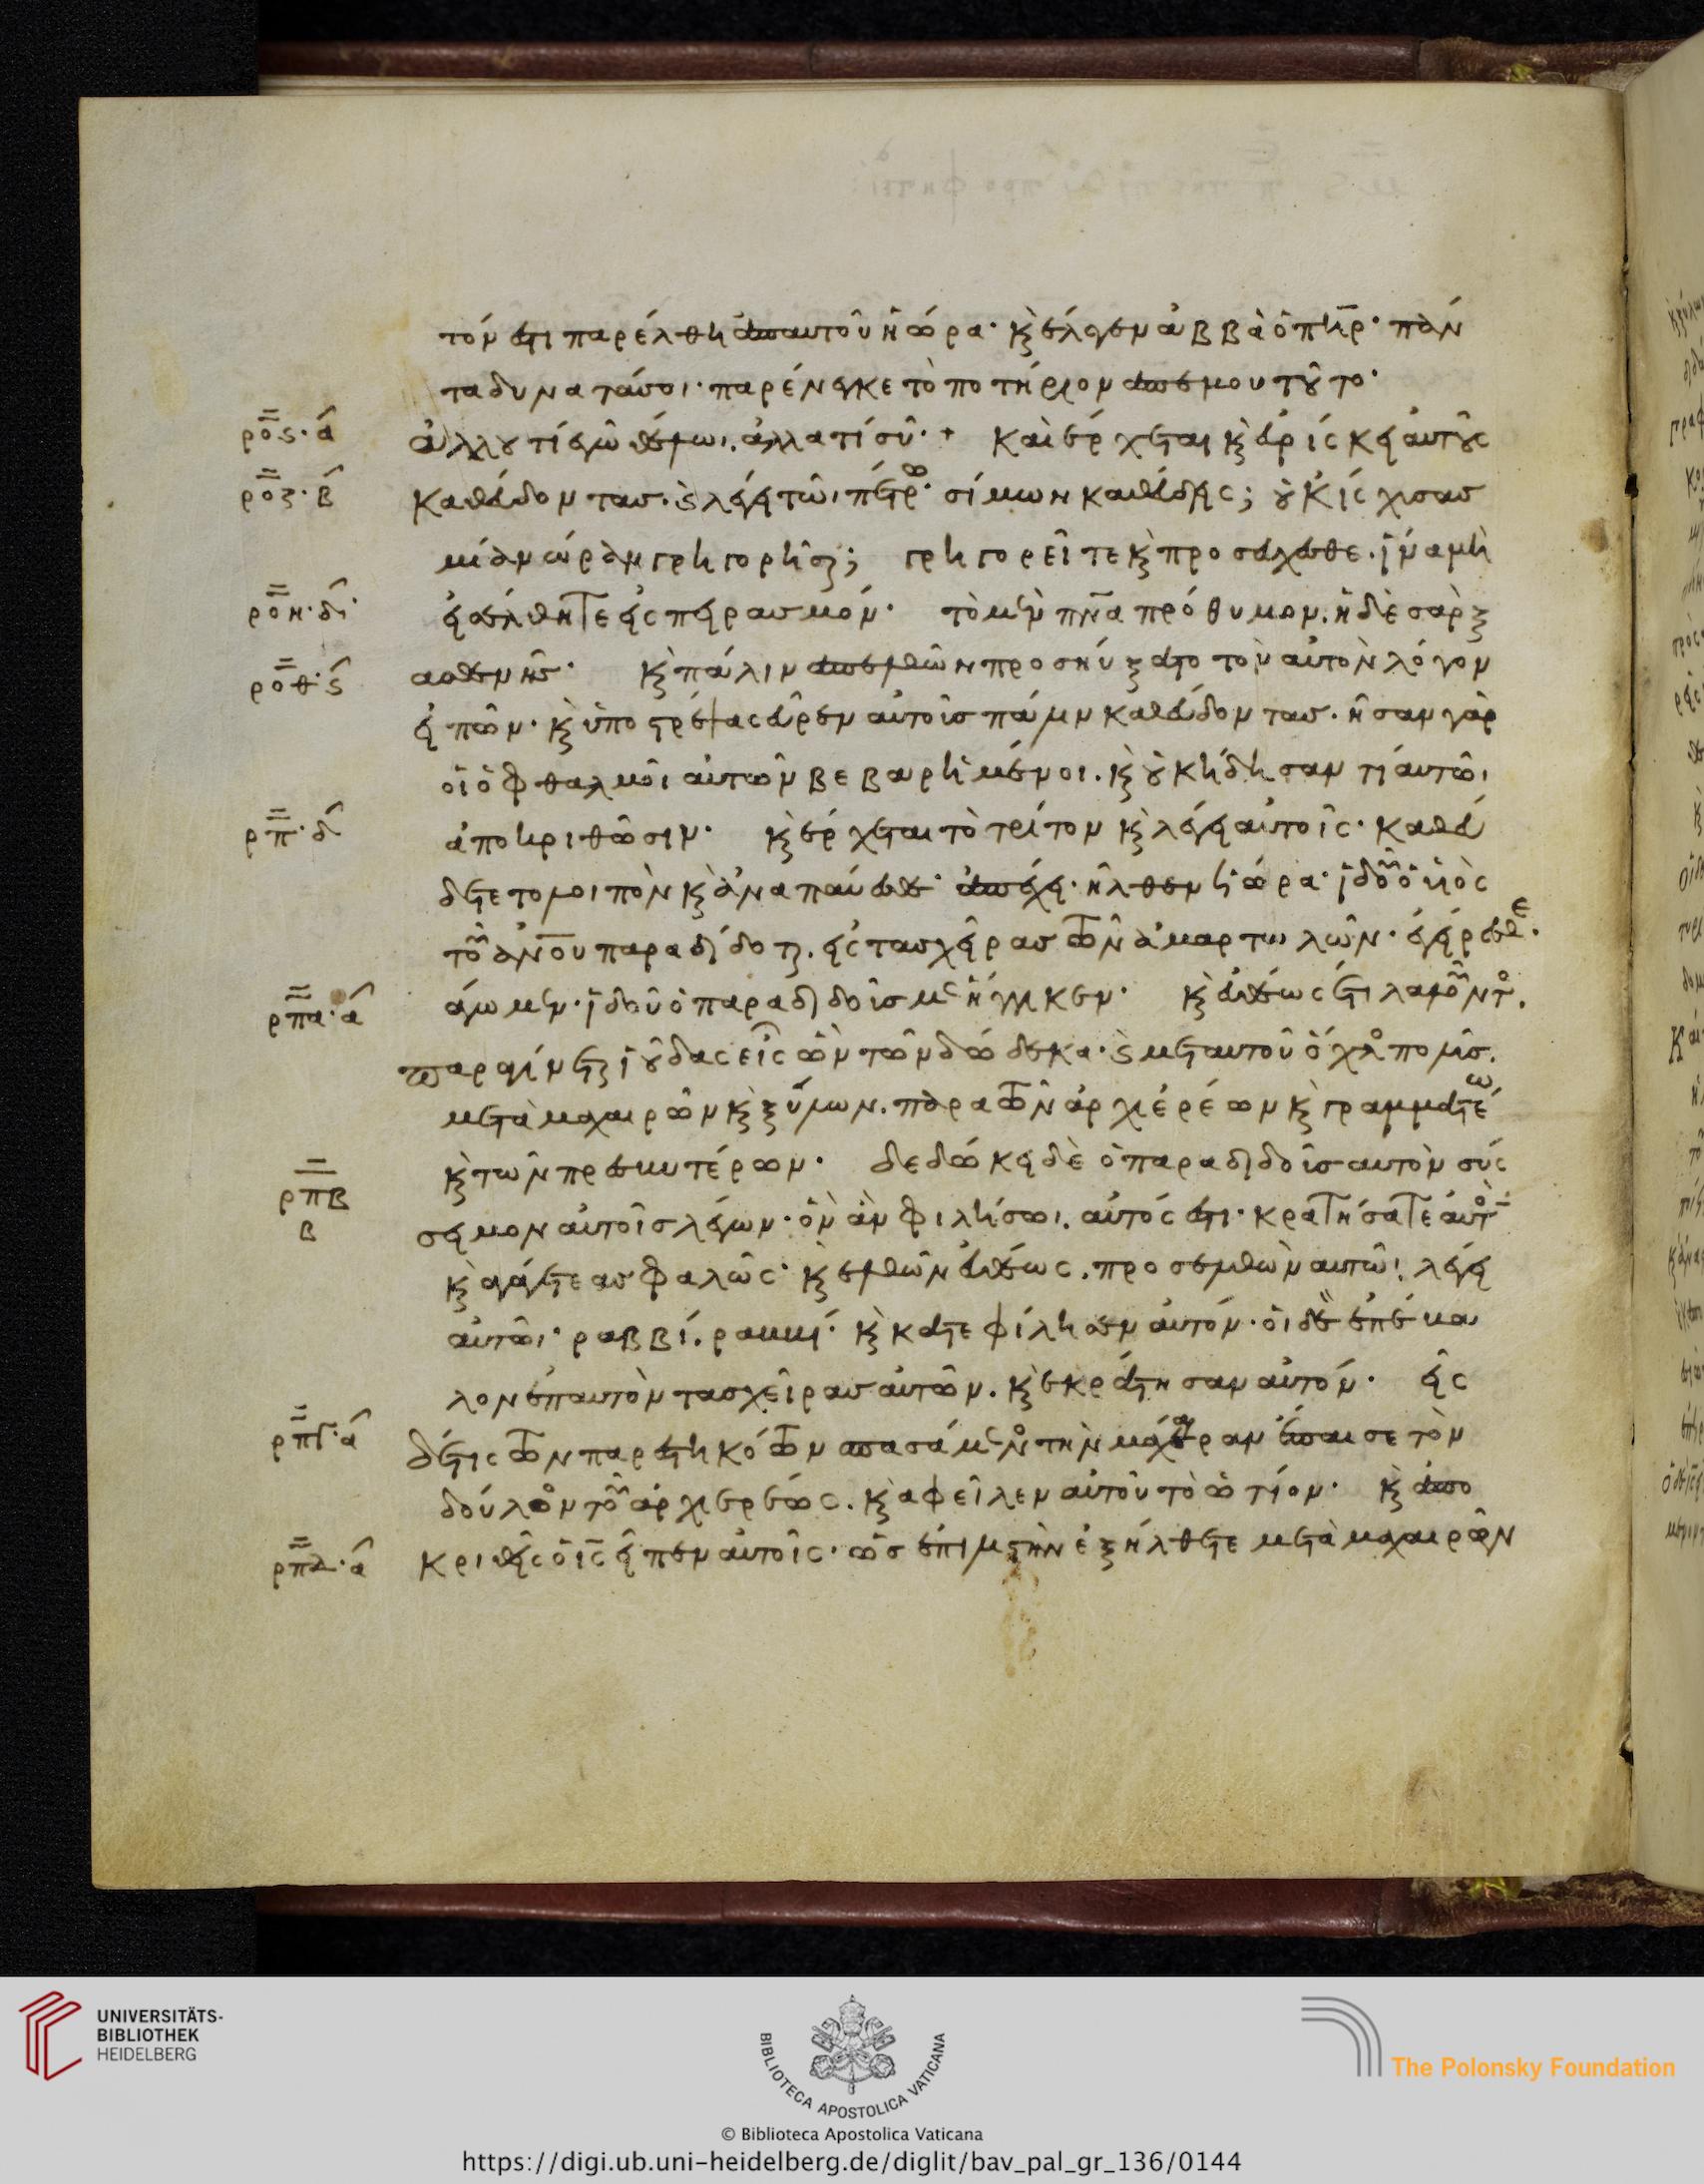 τόν ἐστι παρέλθη ἀπ αὐτοῦ ἡ ὥρα· κ(αὶ) ἔλεγεν ἀββὰ ὁ π̅η̅ρ̅· πάν
τα δυνατά σοι· παρένεγκε τὸ ποτήριον ἀπ ἐμοῦ τοῦτο·
ρ̅ο̅ς· α ἀλλ οὐ τί ἐγὼ θέλωι. ἀλλα τί σύ· + καὶ έρχεται κ(αὶ) εὑρίσκει αὐτοὺς
ρ̅ο̅ζ· β καθεύδοντας. κ(αὶ) λέγει τῶι πέτρω· σίμων καθεύδεις; οὐκ ἴσχυσας
μίαν ὥραν γρηγορῆσαι; γρηγορεῖτε κ(αὶ) προσεύχεσθε. ἵνα μὴ
ρ̅ο̅η· δ εἰσέλθητε εἰς πειρασμόν· τὸ μὲν π̅ν̅α̅ πρόθυμον. ἡ δὲ σὰρξ
ρ̅ο̅θ· ς ἀσθενής· κ(αὶ) πάλιν ἀπελθὼν προσηύξατο τὸν αὐτὸν λόγον
εἰπών· κ(αὶ) ὑποστρέψας εὗρεν αὐτοῖς πάλιν καθεύδοντας. ἦσαν γὰρ
οἱ ὀφθαλμοὶ αὐτῶν βεβαρημένοι. κ(αὶ) οὐκ ήδησαν τί αὐτῶι
ρ̅π̅· δ ἀποκριθῶσιν· κ(αὶ) έρχεται τὸ τρίτον κ(αὶ) λέγει αὐτοῖς· καθεύ
δετε το λοιπὸν κ(αὶ) ἀναπαύεσθε· ἀπέχει· ἦλθεν ἡ ὥρα· ἰδοὺ ὁ υἱὸς
τοῦ α̅ν̅ο̅υ̅ παραδίδοται. εἰς τας χεῖρας τῶν ἁμαρτωλῶν· ἐγείρεσθε.
ρ̅π̅α· α άγωμεν· ἰδοῦ ὁ παραδιδούς με ήγγικεν· κ(αὶ) εὐθέως ἔτι λαλοῦντος.
παραγίνεται ἰούδας εἷς ὢν τῶν δώδεκα· κ(αὶ) μετ αυτοῦ ὄχλος πολύς.
μετὰ μαχαιρῶν κ(αὶ) ξύλων. παρα τῶν ἀρχιερέων κ(αὶ) γραμματέω
ρ̅π̅β β κ(αὶ) τῶν πρεσβυτέρων· δεδώκει δὲ ὁ παραδιδοὺς αυτὸν σύς
σημον αὐτοῖς λέγων· ὃν ἂν φιλήσωι. αὐτός ἐστι· κρατήσατε αὐτὸ
κ(αὶ) ἀγάγετε ασφαλῶς· κ(αὶ) ἐλθὼν εὐθέως. προσελθὼν αυτῶι· λέγει
αὐτῶι· ραββί. ραββί· κ(αὶ) κατεφίλησεν αὐτόν· οἱ δὲ ἐπέβα
λον ἐπ αυτὸν τας χεῖρας αὐτῶν. κ(αὶ) ἐκράτησαν αὐτόν· εἷς
ρ̅π̅γ· α δέ τις τῶν παρεστηκότων σπασάμενος τὴν μάχαιραν ἔπαισε τὸν
δούλον τοῦ ἀρχιερέως. κ(αὶ) αφεῖλεν αὐτοῦ τὸ ὠτίον· κ(αὶ) ἀπο
ρ̅π̅δ· α κριθεὶς ὁ ι̅ς̅ εἶπεν αὐτοῖς· ὡς ἐπι ληστὴν ἐξήλθετε μετὰ μαχαιρῶν
UNIVERSITÄTS-
BIBLIOTHEK
HEIDELBERG
BIBLIOTECA APOSTOLICA VATICANA
The Polonsky Foundation
© Biblioteca Apostolica Vaticana
https://digi.ub.uni-heidelberg.de/diglit/bav_pal_gr_136/0144